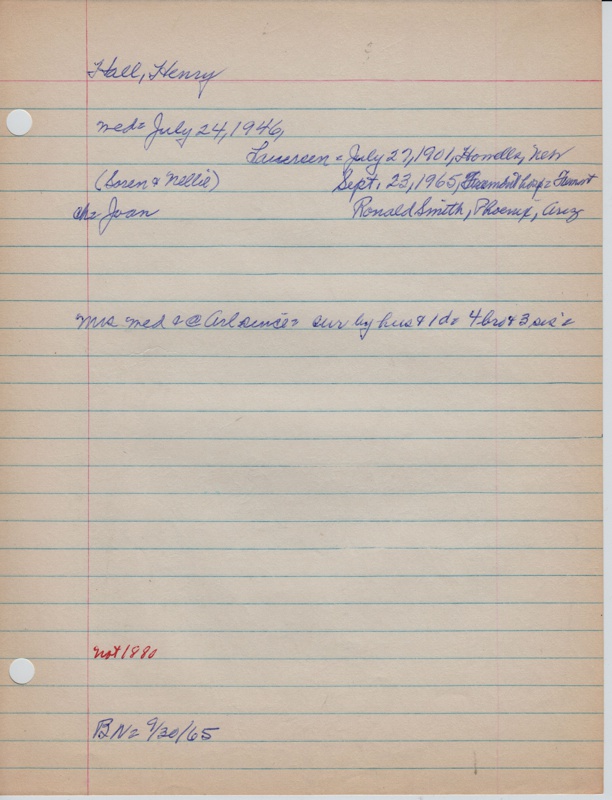 Hall, Henry
med= July 24, 1946,
Laursen = July 27, 1901, Howells, Neb
(Soren & Nellie) Sept. 23, 1965, Fremont hosp= Fremont
ch= Joan Ronald Smith, Phoenix, Ariz
Mrs med & @ Arl since= sur by hus & 1 d= 4 bro & 3 sis'=
not 1880
B.N= 9/30/65